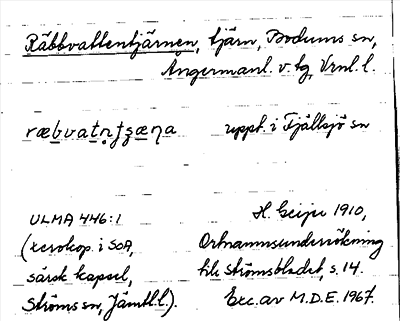 Räbbvattentjärnen, tjärn, Bodums sn,
Ångermanl. v. tg, Vrnl. l.
ræbvatn̥tʂæna uppt. i Fjällsjö sn
ULMA 446:1 H. Geijer 1910,
(xerokop. i SOA, Ortnamnsundersökning
särsk kapsel, till Strömsbladet, s. 14.
Ströms sn, Jämtl. l.). Exc. av M.D.E. 1967.